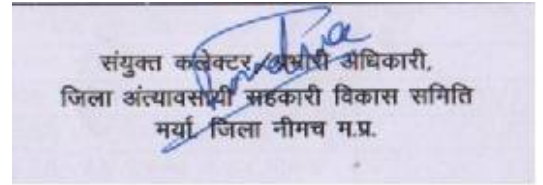 संयुक्त कलेक्टर/प्रभारी अधिकारी,
जिला अंत्यावसायी सहकारी विकास समिति
मर्या. जिला नीमच म.प्र.